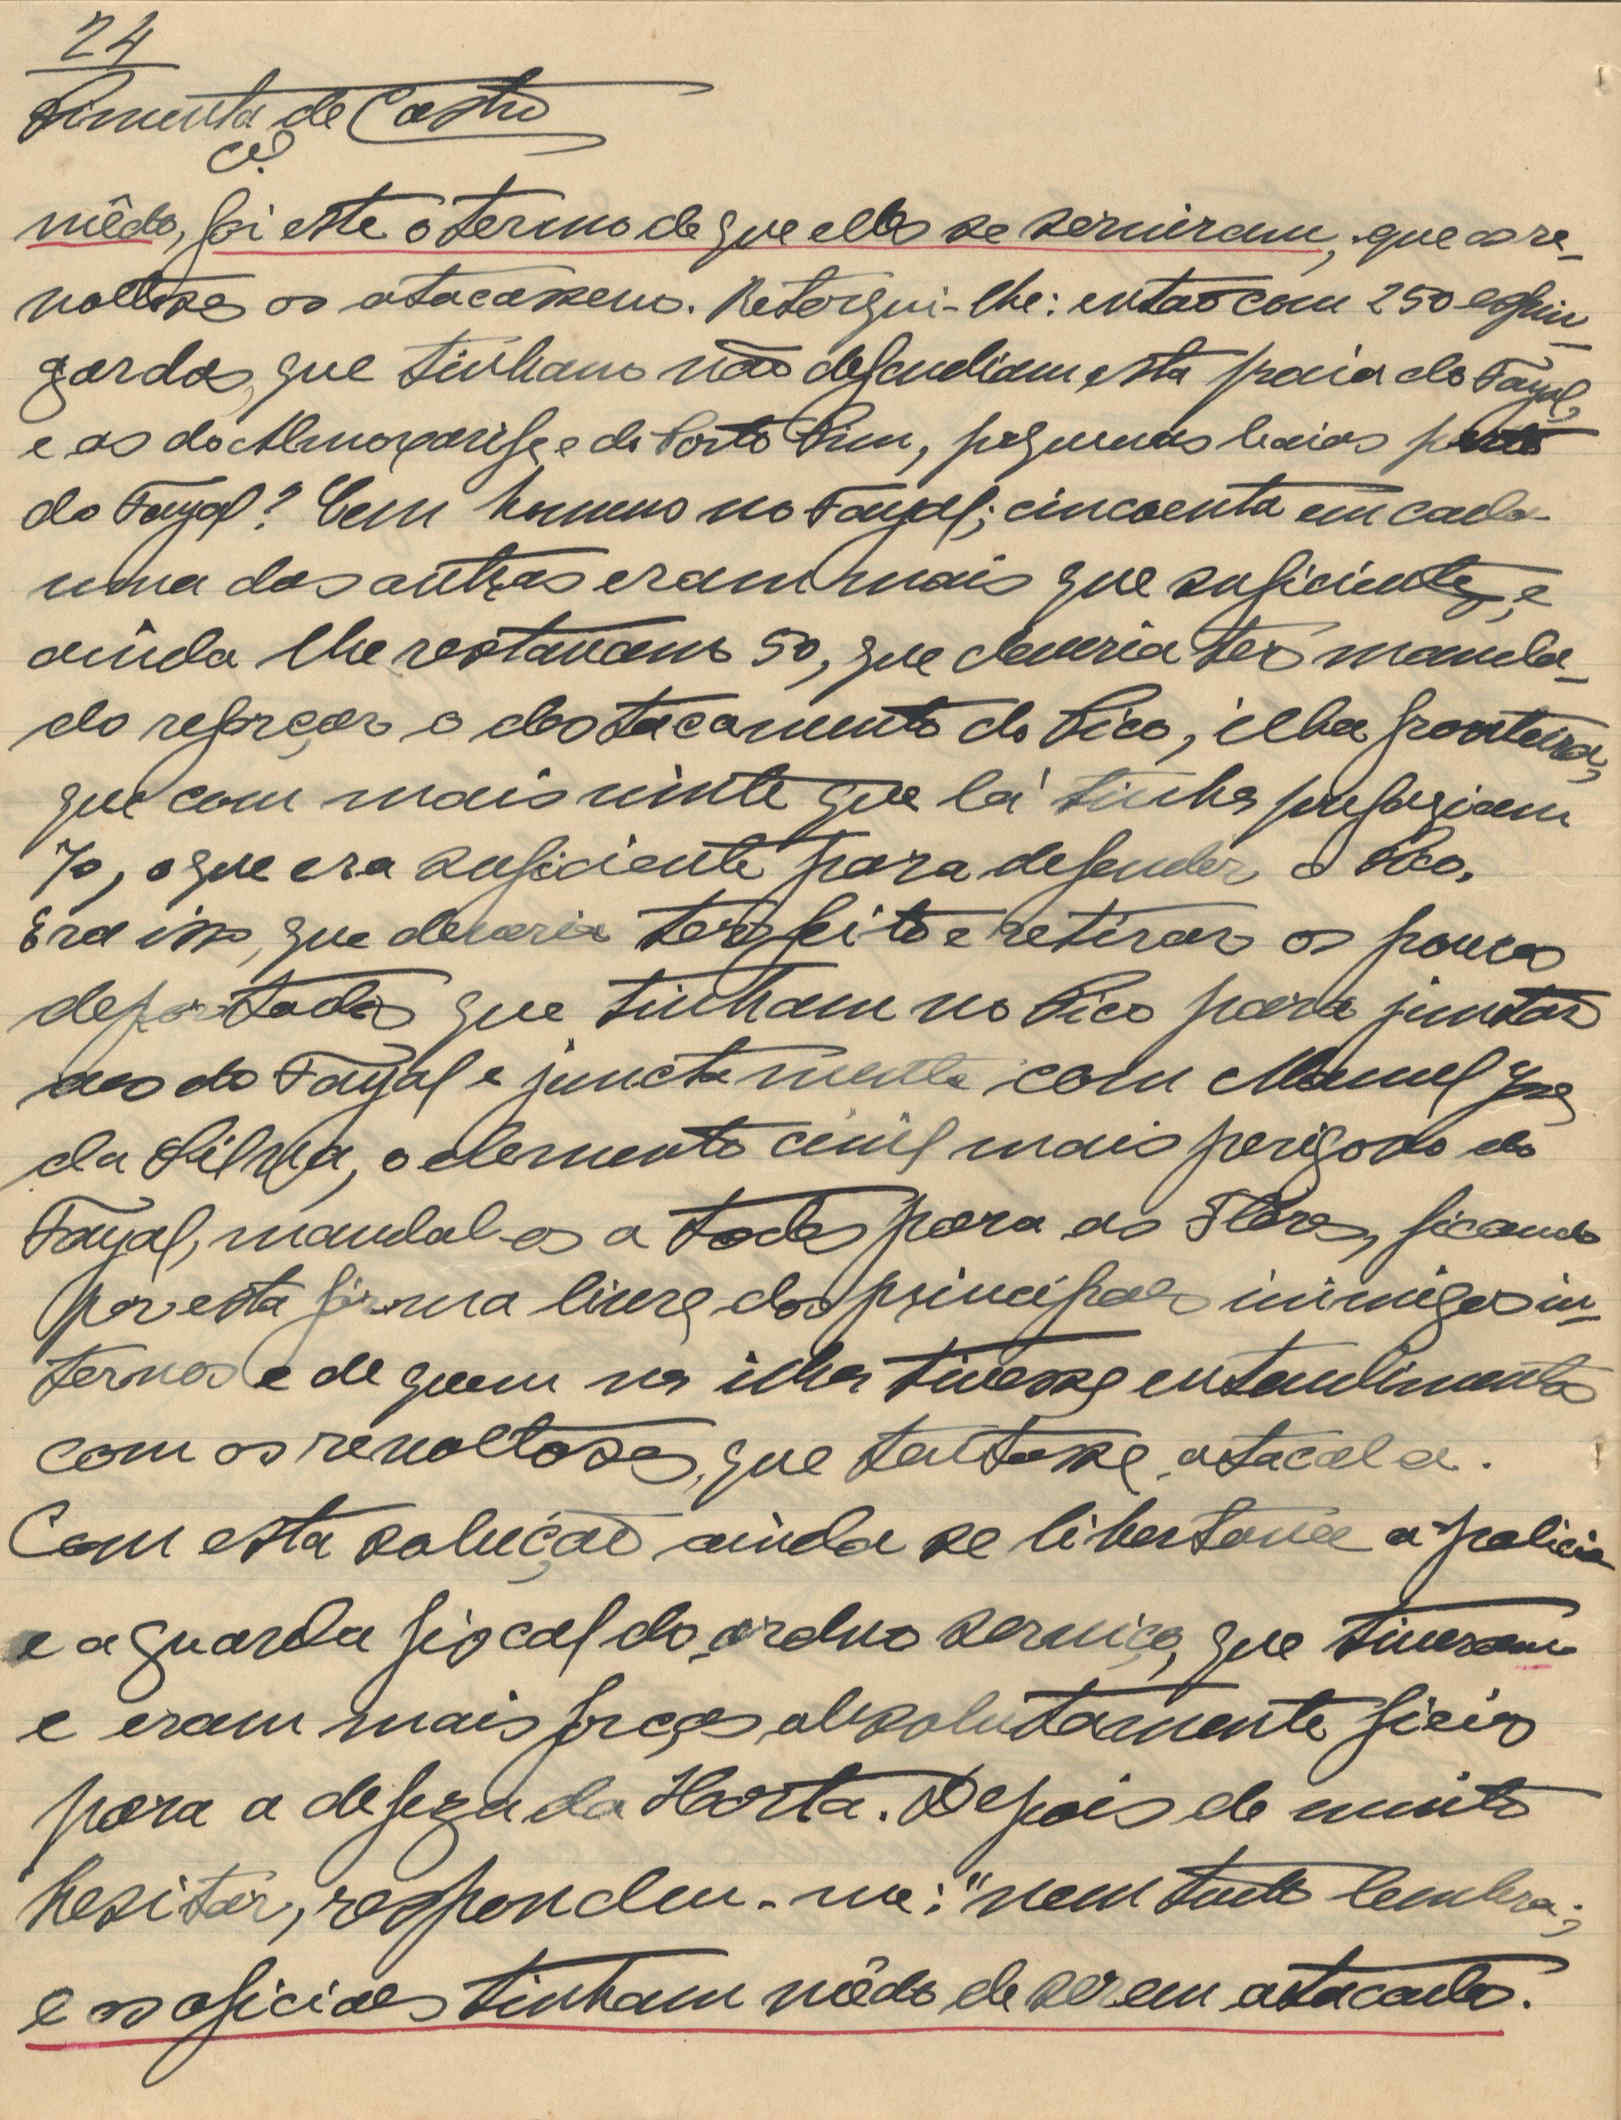 24
Pimenta de Castro
Cel
mêdo, foi este o termo de que elles se serviram, que os re-
voltosos os atacassem. Retorqui-lhe: então com 250 espin-
gardas, que tinham não defendiam esta praia do Fayal,
e as do Almoxarife e do Porto Pim, pequenas baias perto
do Fayal? Cem homens no Fayal; cincoenta em cada
uma das outras eram mais que suficientes, e
ainda lhe restavam 50, que deveria ter manda-
do reforçar o destacamento do Pico, ilha fronteira,
que com mais vinte que lá tinha prefaziam
70, o que era suficiente para defender o Pico.
Era isso, que deveria ter feito e retirar os poucos
deportados que tinham no Pico para juntar
aos do Fayal e junctamente com Manuel José
da Silva, o elemento civil mais perigoso do
Fayal, mandal-os a todos para as Flôres, ficando
por esta fórma livre dos principaes inimigos in-
ternos e de quem na ilha tivesse entendimentos
com os revoltosos, que tentasse atacal-a.
Com esta solução ainda se libertava a policia
e a guarda fiscal do arduo serviço, que tiveram
e eram mais forças absolutamente fieis
para a defeza da Horta. Depois de muito
hesitar, respondeu-me: "nem tudo lembra;
e os oficiaes tinham mêdo de serem atacados.